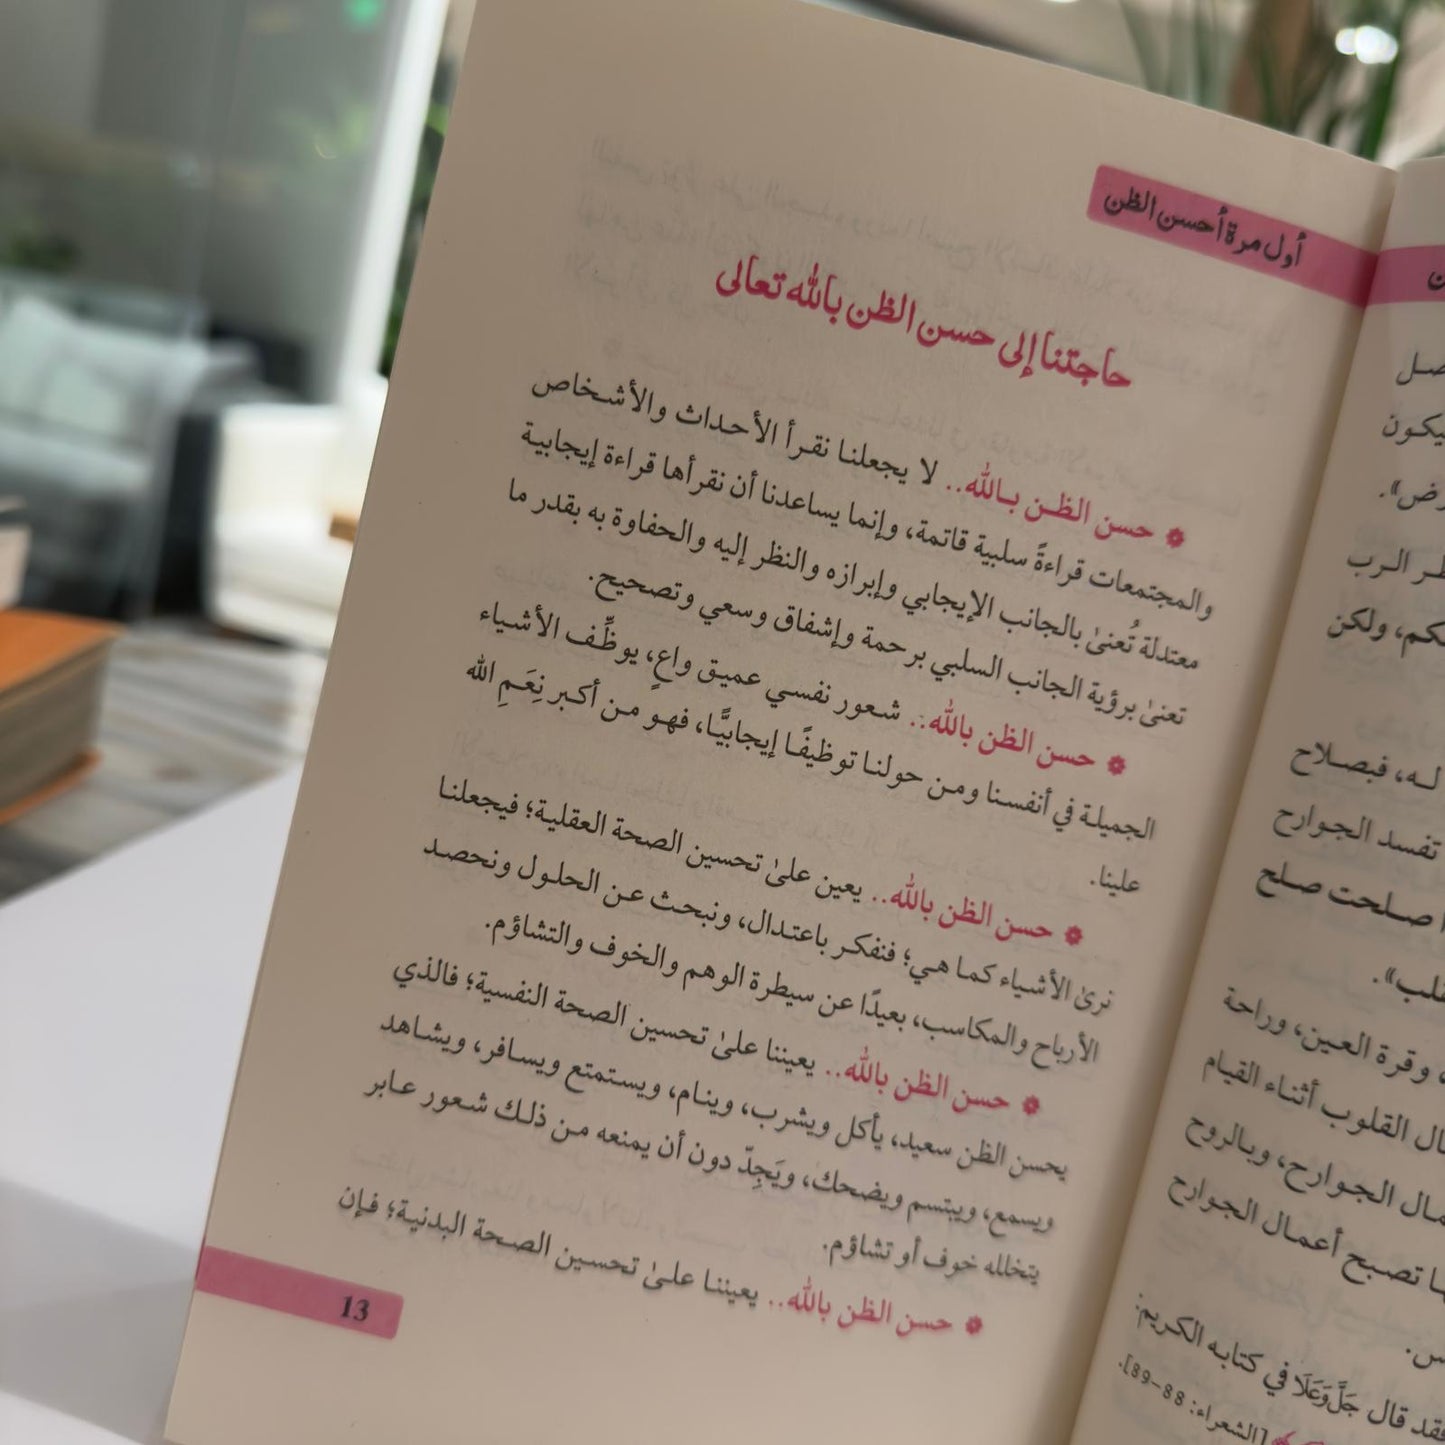 أول مرة أحسن الظن
حاجتنا إلى حسن الظن بالله تعالى
❁ حسن الظن بالله.. لا يجعلنا نقرأ الأحداث والأشخاص
والمجتمعات قراءةً سلبية قاتمة، وإنما يساعدنا أن نقرأها قراءة إيجابية
معتدلة تُعنىٰ بالجانب الإيجابي وإبرازه والنظر إليه والحفاوة به بقدر ما
تعنىٰ برؤية الجانب السلبي برحمة وإشفاق وسعي وتصحيح.
❁ حسن الظن بالله.. شعور نفسي عميق واعٍ، يوظِّف الأشياء
الجميلة في أنفسنا ومن حولنا توظيفًا إيجابيًّا، فهو من أكبر نِعَمِ الله
علينا.
❁ حسن الظن بالله.. يعين علىٰ تحسين الصحة العقلية؛ فيجعلنا
نرىٰ الأشياء كما هي؛ فنفكر باعتدال، ونبحث عن الحلول ونحصد
الأرباح والمكاسب، بعيدًا عن سيطرة الوهم والخوف والتشاؤم.
❁ حسن الظن بالله.. يعيننا علىٰ تحسين الصحة النفسية؛ فالذي
يحسن الظن سعيد، يأكل ويشرب، وينام، ويستمتع ويسافر، ويشاهد
ويسمع، ويبتسم ويضحك، ويَجِدّ دون أن يمنعه من ذلك شعور عابر
يتخلله خوف أو تشاؤم.
❁ حسن الظن بالله.. يعيننا علىٰ تحسين الصحة البدنية؛ فإن
13
فيكون
الرب
ولكن
له، فبصلاح
تفسد الجوارح
صلحت صلح
وقرة العين، وراحة
القلوب أثناء القيام
الجوارح، وبالروح
تصبح أعمال الجوارح
قال جَلَّ وَعَلَا في كتابه الكريم:
[الشعراء: 88-89].